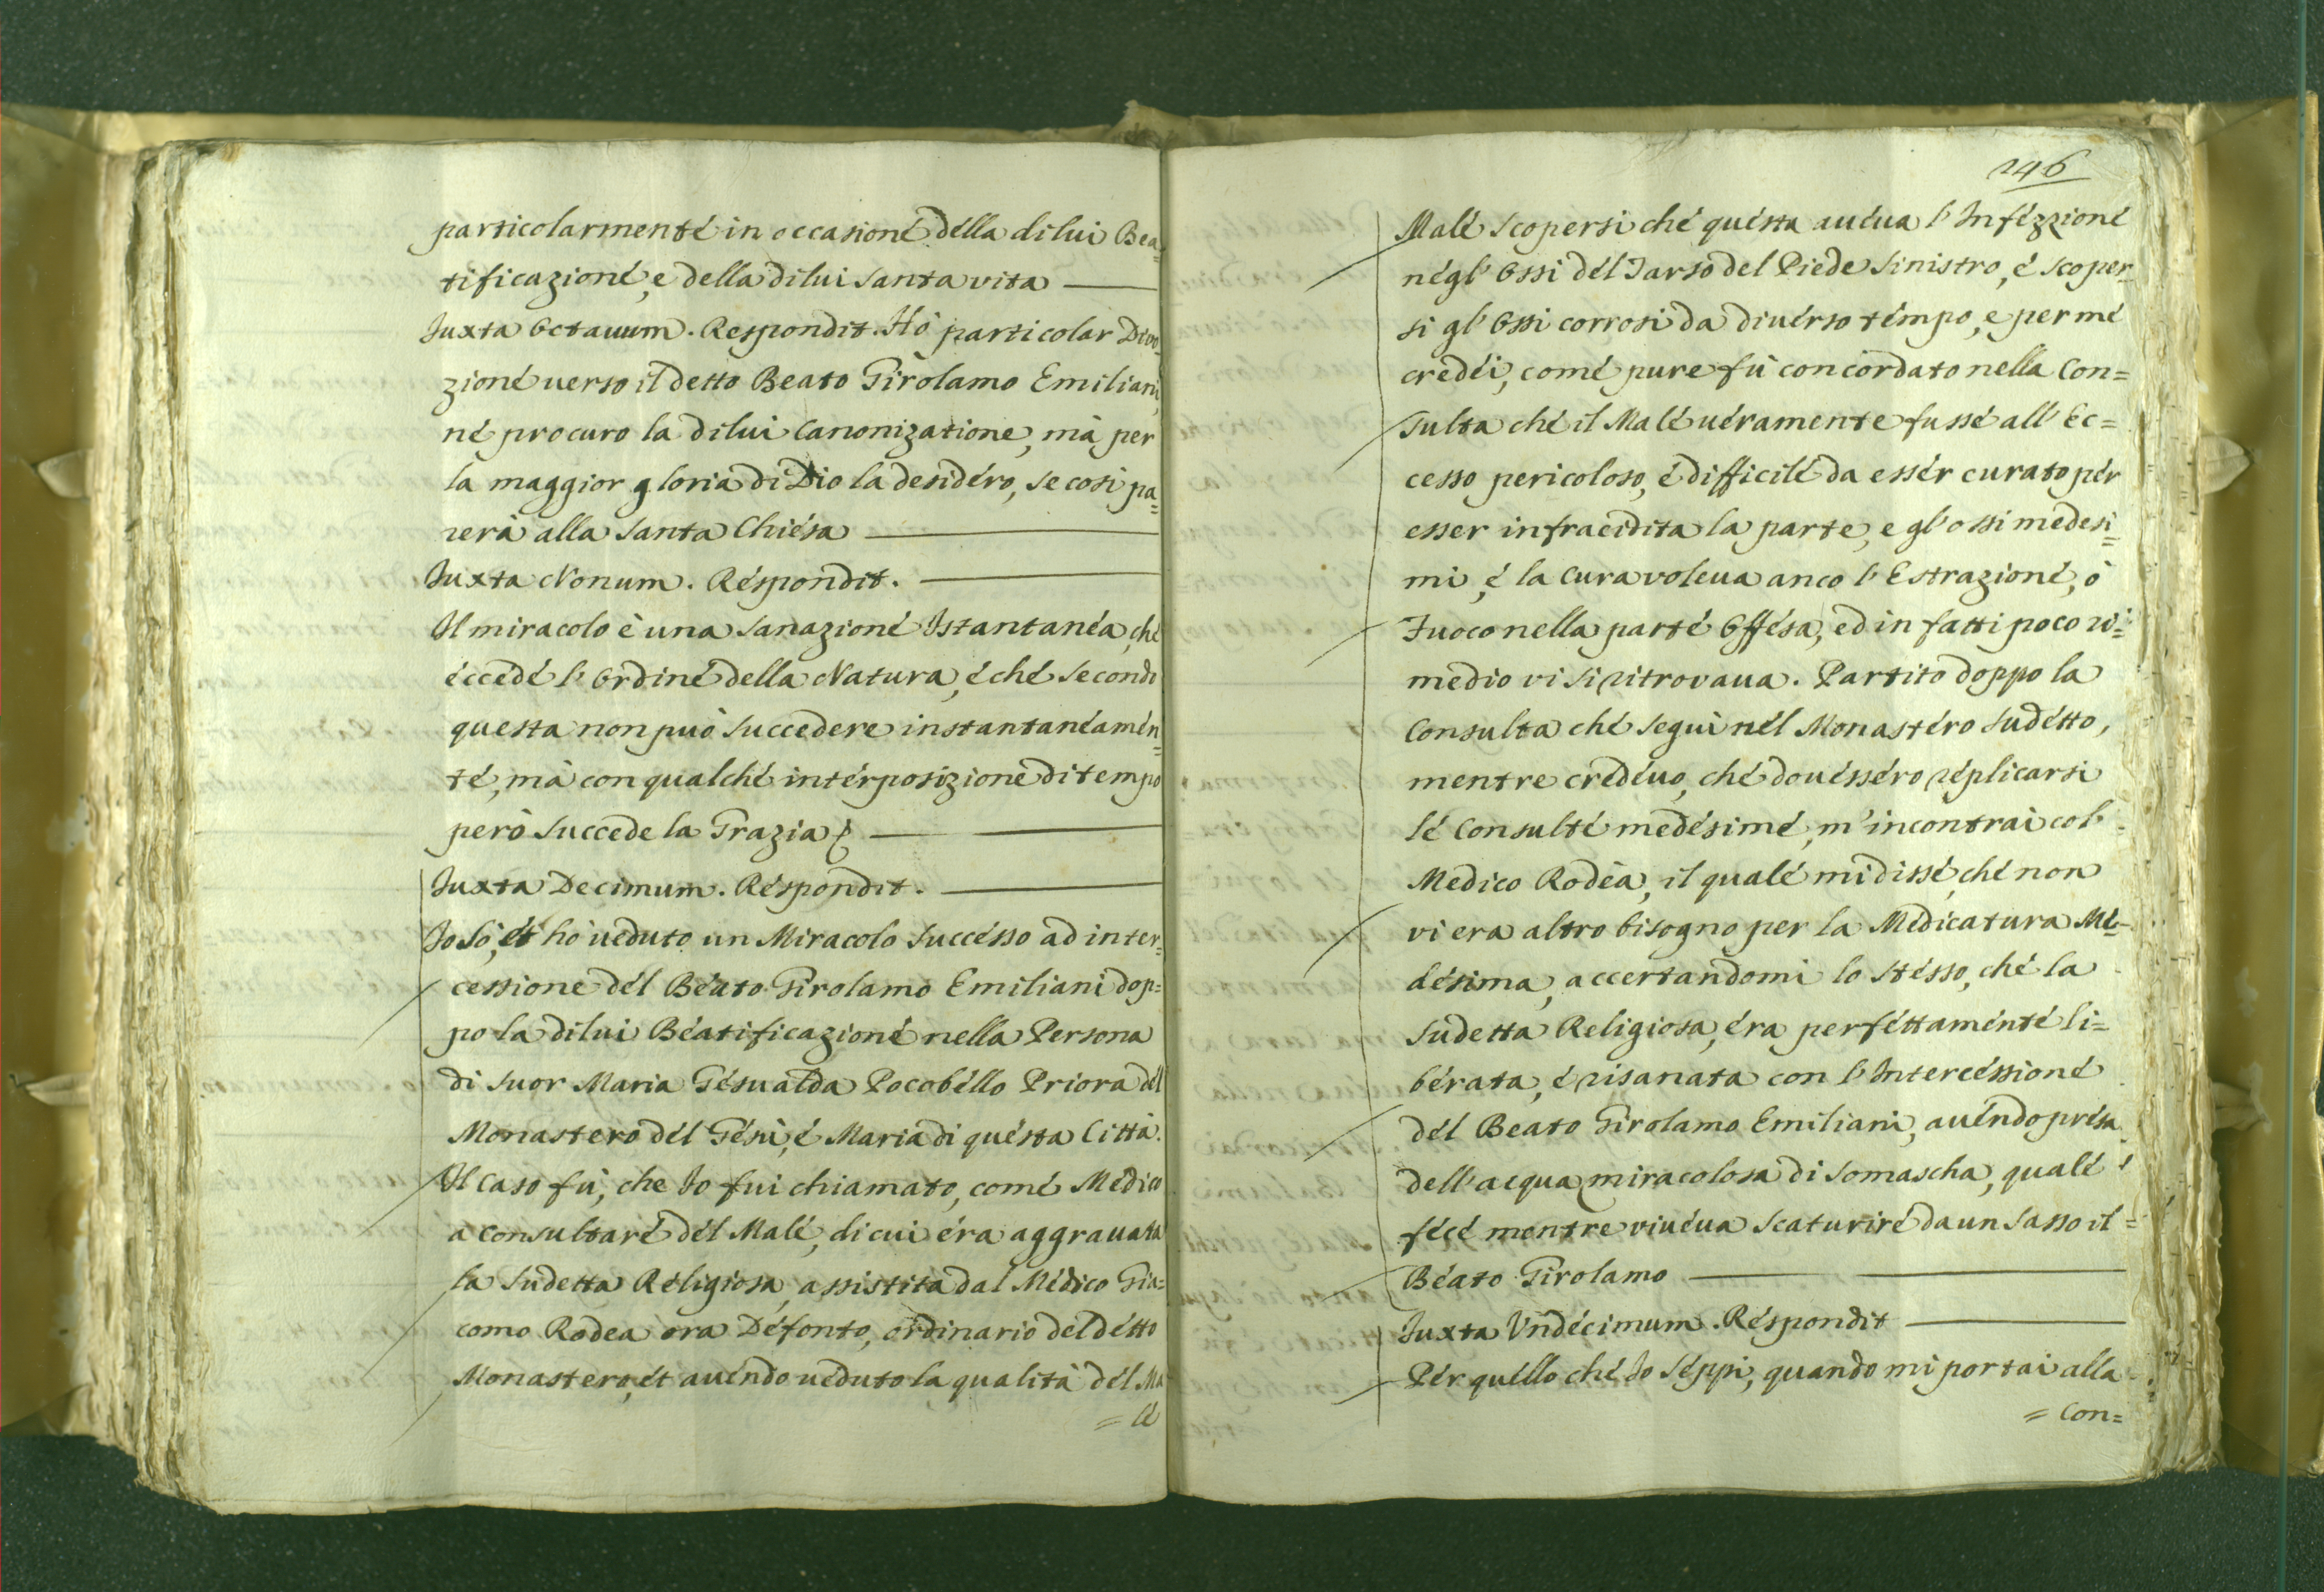 particolarmenté in occasioné della di lui Bea=
tificazioné, e della di lui Santa vita
Juxta Octauum. Respondit. Hò particolar Divo=
zioné uerso il detto Beato Girolamo Emiliani,
né procuro la di lui Canonizatione, mà per
la maggior gloria di Dio la desidéro, se così pa=
rerà alla Santa Chiésa
Juxta Nonum. Réspondit.
Il miracolo è una Sanazioné Istantanéa, ché
éccedé l'Ordiné della Natura, é ché secondo
questa non può succedere instantanéamén=
té, mà con qualché intérposizione di tempo
però succede la Grazia
Juxta Decimum. Réspondit.
Io sò, et hò ueduto un Miracolo succésso ad inter=
cessione dél Béato Girolamo Emiliani dop=
po la di lui Béatificazioné nella Persona
di Suor Maria Gésualda Pocobéllo Priora dél
Monastero dél Gésù, é Maria di quésta Città.
Il Caso fù, che Io fui chiamato, comé Médico
à Consultaré dél Malé, di cui éra aggrauata
la Sudetta Religiosa, assistita dal Médico Gia=
como Rodea ora Défonto, ordinario del détto
Monastero, ét auéndo uéduto la qualità dél Ma
= lé
246
Malé scopersi ché quésta auéua l'Infézzioné
négl'Ossi dél Tarso del Piede Sinistro, é scoper=
si gl'Ossi corrosi da divérso témpo, e per mé
credéi, comé pure fù concordato nella Con=
sulta ché il Malé uéramente fussé all'Ec=
cesso pericoloso, é difficilé da essér curato pér
esser infracidita la parte, e gl'ossi medesi=
mi, é la Cura voleua anco l'Estrazioné, ò
Fuoco nella parté Offésa, ed in fatti poco ri=
medio vi si ritrovaua. Partito doppo la
Consulta ché seguì nél Monastéro sudétto,
mentre credéuo, ché douésséro réplicarsi
lé Consulté medésimé, m'incontrai col
Medico Rodèa, il qualé mi dissé, ché non
vi era altro bisogno per la Medicatura Me=
désima, accertandomi lo stésso, ché la
sudetta Religiosa, éra perféttaménté li=
bérata, é risanata con l'Intercéssioné
dél Beato Girolamo Emiliani, auéndo présa
dell'acqua miracolosa di Somascha, qualé
fécé mentre viuéua scaturiré da un Sasso il=
Béato Girolamo
Juxta Vndécimum. Réspondit
Pér quéllo ché Io séppi, quando mi portai alla
= Con=